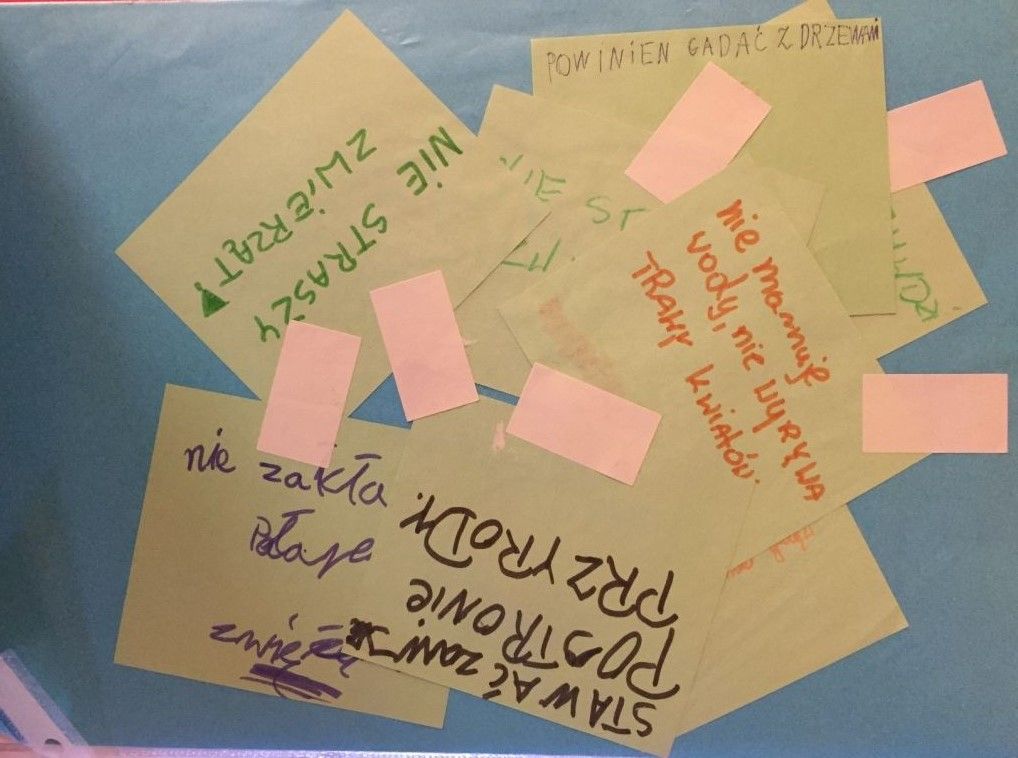 POWINIEN GADAĆ Z DRZEWAMI
NIE STRASZY
ZWIERZĄT!
nie marnuje
wody, nie wyrywa
TRAWY KWIATÓW.
nie zakła
Pułapek
STAWAĆ ZAWSZE
PO STRONIE
PRZYRODY.